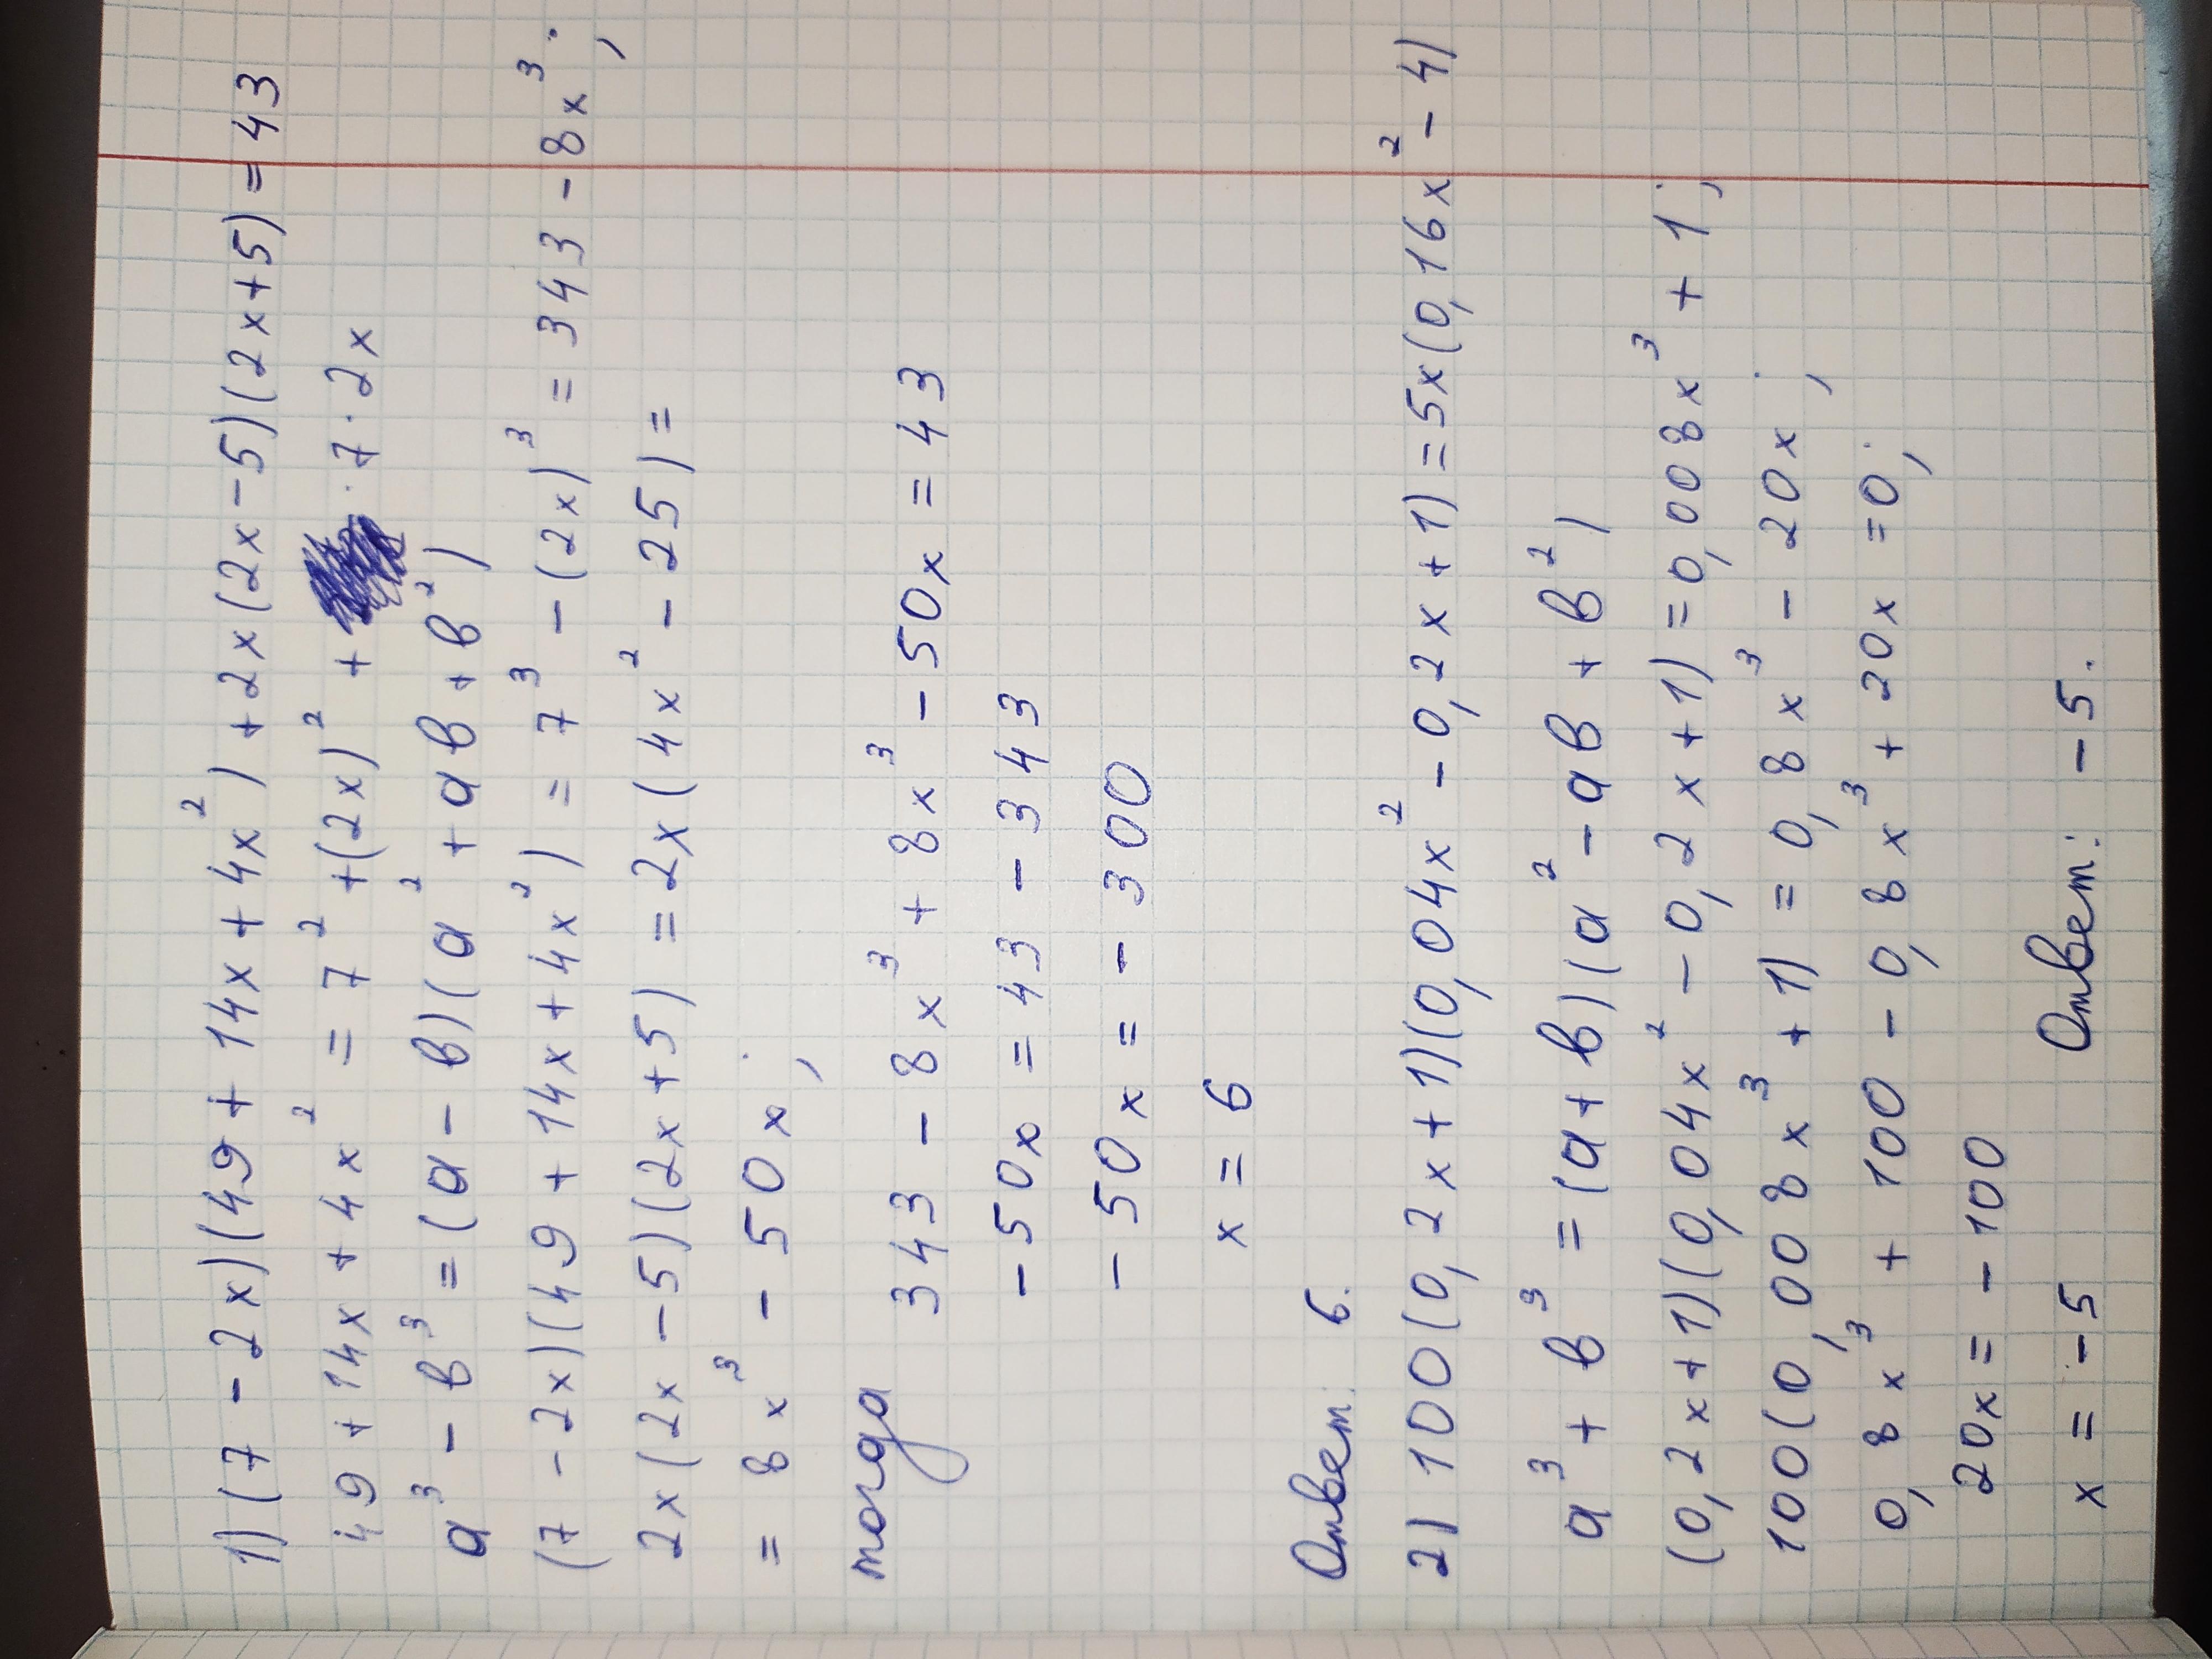 1) (7 - 2x)(49 + 14x + 4x²) + 2x(2x - 5)(2x + 5) = 43
49 + 14x + 4x² = 7² + (2x)² + · 7 · 2x
a³ - b³ = (a - b)(a² + ab + b²)
(7 - 2x)(49 + 14x + 4x²) = 7³ - (2x)³ = 343 - 8x³;
2x(2x - 5)(2x + 5) = 2x(4x² - 25) =
= 8x³ - 50x;
тогда 343 - 8x³ + 8x³ - 50x = 43
- 50x = 43 - 343
- 50x = - 300
x = 6
Ответ: 6.
2) 100(0,2x + 1)(0,04x² - 0,2x + 1) = 5x(0,16x² - 4)
a³ + b³ = (a + b)(a² - ab + b²)
(0,2x + 1)(0,04x² - 0,2x + 1) = 0,008x³ + 1;
100(0,008x³ + 1) = 0,8x³ - 20x;
0,8x³ + 100 - 0,8x³ + 20x = 0;
20x = - 100
x = - 5 Ответ: - 5.